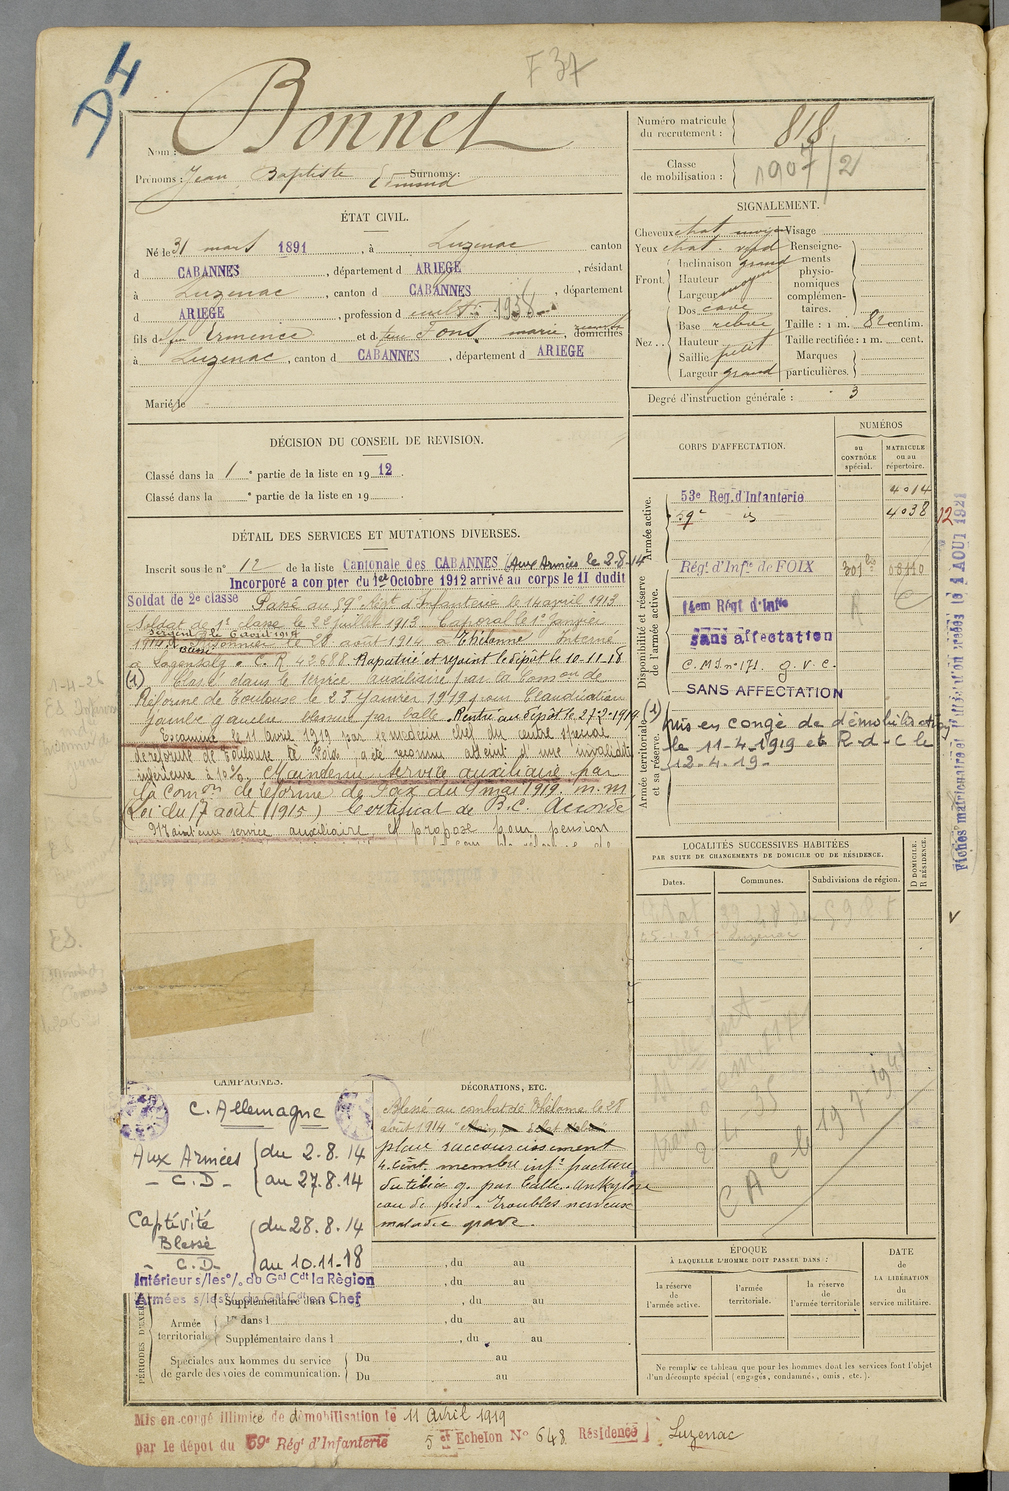 A4
F 37
Nom : Bonnet
Prénoms : Jean Baptiste Edmond Surnoms :
Numéro matricule du recrutement : 818
Classe de mobilisation : 1907/2
ÉTAT CIVIL.
Né le 31 mars 1891, à Luzenac canton
d CABANNES, département d ARIEGE, résidant
à Luzenac, canton d CABANNES, département
d ARIEGE, profession d cult
fils de feu et de feu Fons marie, domiciliés
à Luzenac, canton d CABANNES, département d ARIEGE
Marié le
SIGNALEMENT.
Cheveux chat Visage
Yeux chat. Renseigne-
Front. Inclinaison grand ments
Hauteur physio-
Largeur moyen nomiques
Nez. Dos cave complémen-
taires.
Base relevée Taille : 1 m. 82 centim.
Hauteur Taille rectifiée : 1 m. cent.
Saillie petit Marques
Largeur grand particulières.
Degré d'instruction générale : 3
DÉCISION DU CONSEIL DE REVISION.
Classé dans la 1 e partie de la liste en 1912.
Classé dans la e partie de la liste en 19
CORPS D'AFFECTATION.
NUMÉROS
AU CONTRÔLE spécial.
MATRICULE ou au répertoire.
Armée active.
53e Reg. d'Infanterie 4014
59e 4038
Disponibilité et réserve de l'armée active.
Régt d'Infie de FOIX
14em Régt d'Infie
sans affectation
C.M.I. n° 171. g.v.c.
SANS AFFECTATION
Armée territoriale et sa réserve.
(1) Mis en congé de démobilisation
le 11-4-1919 et R-d-C le
12-4-19-
Fiches matricule et
DÉTAIL DES SERVICES ET MUTATIONS DIVERSES.
Inscrit sous le n° 12 de la liste Cantonale des CABANNES Aux Armées le 2-8-14
Incorporé a compter du 1er Octobre 1912 arrivé au corps le 11 dudit
Soldat de 2e classe Passé au 59e Régt d'Infanterie le 14 avril 1913
Soldat de 1e classe le 2 juillet 1913. Caporal le 1er Janvier
Sergent le 6 avril 1914
1914. Blessé Prisonnier le 28 août 1914 à Thélonne Interné
à Langensalza C. R. 43688. Rapatrié et rejoint le dépôt le 10-11-18
(1) Classé dans le service auxiliaire par la Comon de
Réforme de Toulouse le 23 Janvier 1919 pour Claudication
jambe gauche blessure par balle. Rentré au dépôt le 27-2-1919
Examiné le 11 avril 1919 par le médecin chef du centre spécial
de réforme de Toulouse à Foix a été reconnu atteint d'une invalidité
inférieure à 10%. Maintenu service auxiliaire par
la Comon de réforme de Foix du 9 mai 1919. m. m.
(Loi du 17 août 1915) Certificat de B.C. Accordé
Maintenu service auxiliaire et proposé pour pension
LOCALITÉS SUCCESSIVES HABITÉES
PAR SUITE DE CHANGEMENTS DE DOMICILE OU DE RÉSIDENCE.
Dates. Communes. Subdivisions de région. D DOMICILE. R RÉSIDENCE.
Luzenac
CAMPAGNES.
C. Allemagne
Aux Armées du 2.8.14
- C.D- au 27.8.14
Captivité du 28.8.14
Blessé
- C.D- au 10.11-18
Intérieur s/les o/. du Gal Cdt la Région
Armées s/les o/. du Gal Cdt en Chef
DÉCORATIONS, ETC.
Blessé au combat de Thélonne le 28
août 1914
plaie raccourcissement
4 cent. membre inf. fracture
du tibia g. par balle. Ankylose
cou de pied. Troubles nerveux
malade grave.
PÉRIODES D'EXERCICES
, du au
, du au
Supplémentaire dans l , du au
Armée territoriale 1re dans l , du au
Supplémentaire dans l , du au
Spéciales aux hommes du service de garde des voies de communication. Du au
Du au
ÉPOQUE
À LAQUELLE L'HOMME DOIT PASSER DANS :
la réserve de l'armée active.
l'armée territoriale.
la réserve de l'armée territoriale
DATE DE LA LIBÉRATION du service militaire.
Ne remplir ce tableau que pour les hommes dont les services font l'objet
d'un décompte spécial (engagés, condamnés, omis, etc.).
Mis en congé illimité de démobilisation le 11 Avril 1919
par le dépôt du 59e Régt d'Infanterie 5e Echelon N° 648 Résidence Luzenac